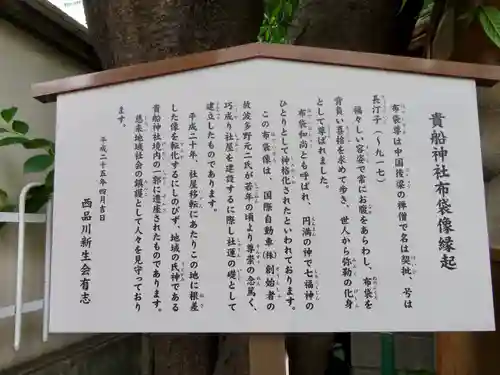 貴船神社布袋像縁起
布袋尊は中国後梁の禅僧で名は契批、号は
長汀子（〜九一七）
福々しい容姿で常にお腹をあらわし、布袋を
背負い喜捨を求めて歩き、世人から弥勒の化身
として尊ばれました。
布袋和尚とも呼ばれ、円満の神で七福神の
ひとりとして神格化されたといわれております。
この布袋像は、国際自動車㈱創始者の
故波多野元二氏が若年の頃より尊崇の念篤く、
巧成り社屋を建設するに際し社運の礎として
建立したものであります。
平成二十年、社屋移転にあたりこの地に根差
した像を転化するにしのびず、地域の氏神である
貴船神社境内の一部に遷座されたものであります。
急来地域社会の鎮護として人々を見守っており
ます。
平成二十五年四月吉日
西品川新生会有志